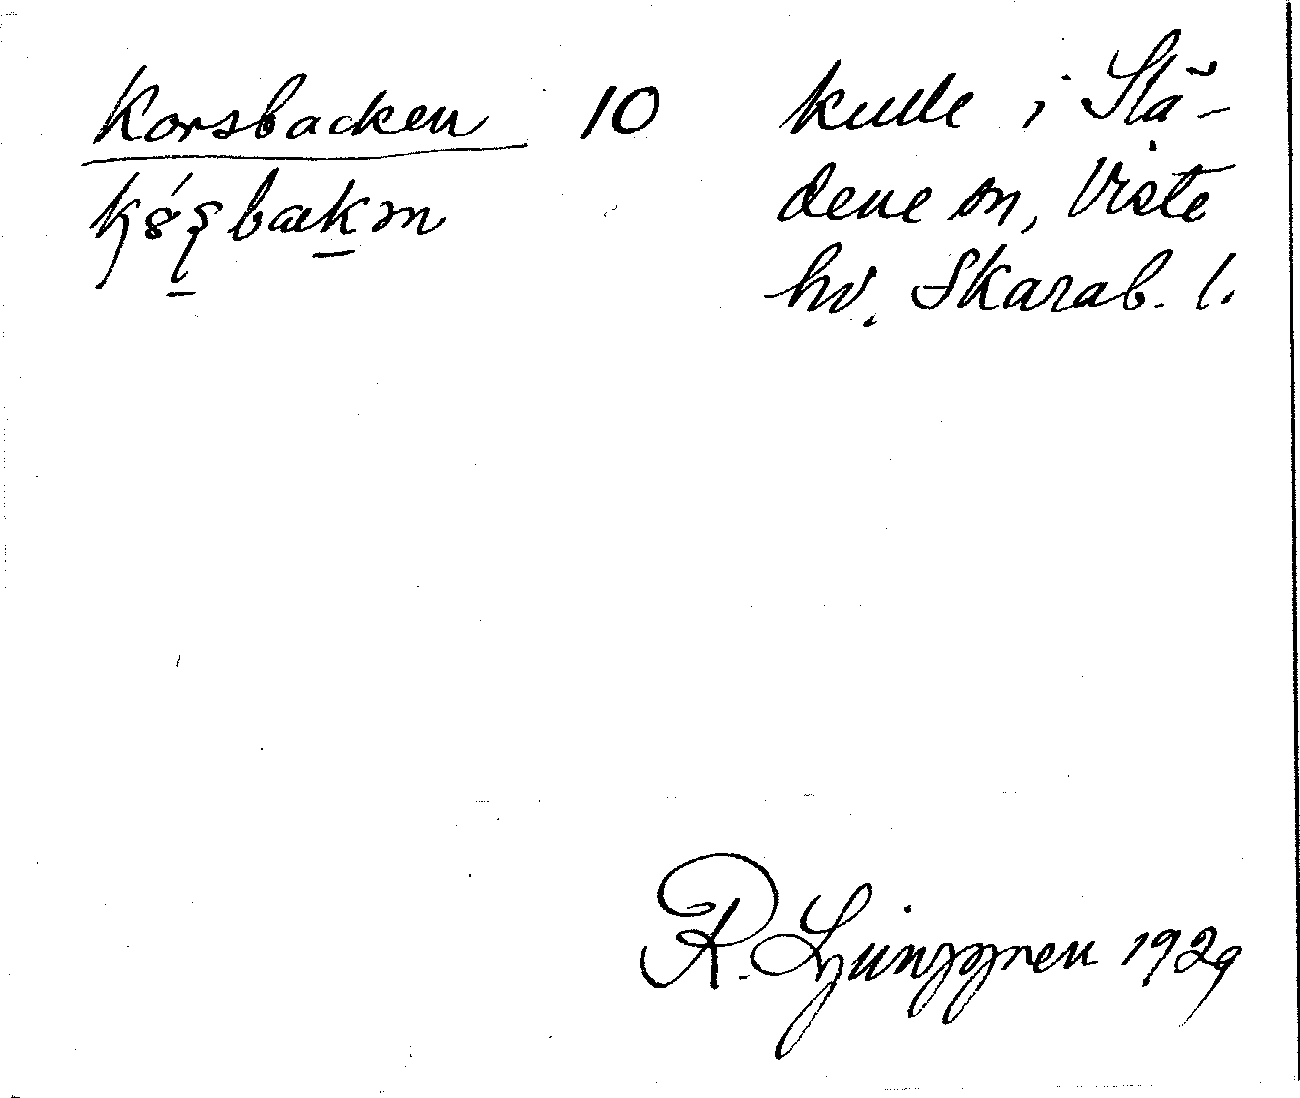 Korsbacken 10 kulle i Slä-
dene sn, Viste
hd. Skarab. l.
R. Ljunggren 1929